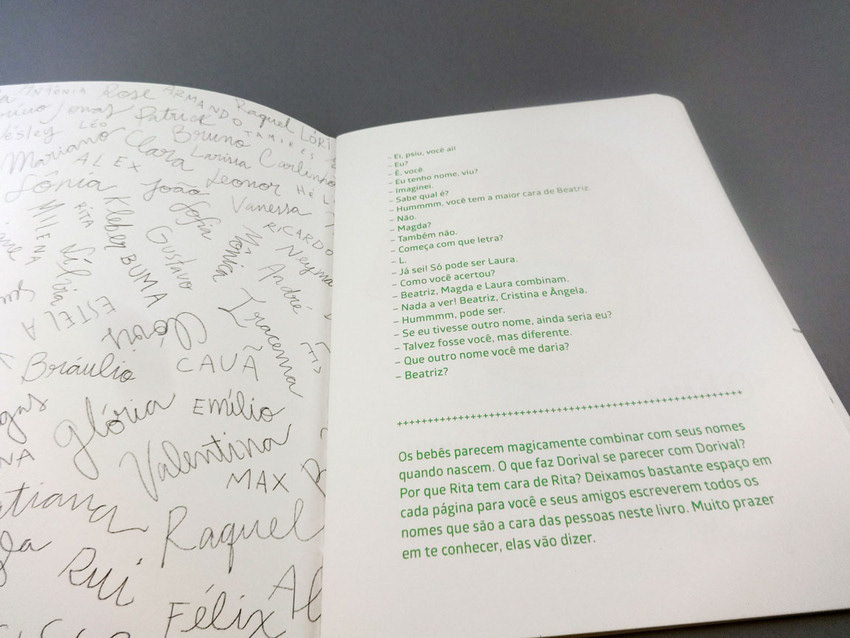 ANTÔNIA Rose ARMANDO Raquel LÓRI
Jonas Patrick TAMIRES
Wesley LÉO Bruno
Mariano Clara Larissa Carlinho
ALEX
Sônia João Leonor HÉL
MILENA RITA Kleber Sofia Vanessa
RICARDO
Gustavo Vânia Neyma
BUMA André
Lílian
ESTELA Iracema
Bráulio CAUÃ ĨS
Glória EMÍLIO
Valentina
MAX
Raquel
Rui
Félix Al
– Ei, psiu, você aí!
– Eu?
– É, você.
– Eu tenho nome, viu?
– Imaginei.
– Sabe qual é?
– Hummmm, você tem a maior cara de Beatriz.
– Não.
– Magda?
– Também não.
– Começa com que letra?
– L.
– Já sei! Só pode ser Laura.
– Como você acertou?
– Beatriz, Magda e Laura combinam.
– Nada a ver! Beatriz, Cristina e Ângela.
– Hummmm, pode ser.
– Se eu tivesse outro nome, ainda seria eu?
– Talvez fosse você, mas diferente.
– Que outro nome você me daria?
– Beatriz?
Os bebês parecem magicamente combinar com seus nomes
quando nascem. O que faz Dorival se parecer com Dorival?
Por que Rita tem cara de Rita? Deixamos bastante espaço em
cada página para você e seus amigos escreverem todos os
nomes que são a cara das pessoas neste livro. Muito prazer
em te conhecer, elas vão dizer.